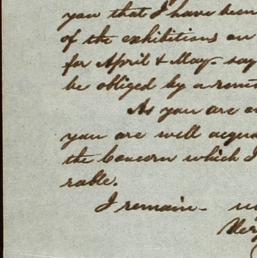 you that I have been
of the exhibitions on
for April & May - say
be obliged by a remi
As you are a
you are well acqua
the concern which I
rable.
I remain -
Very